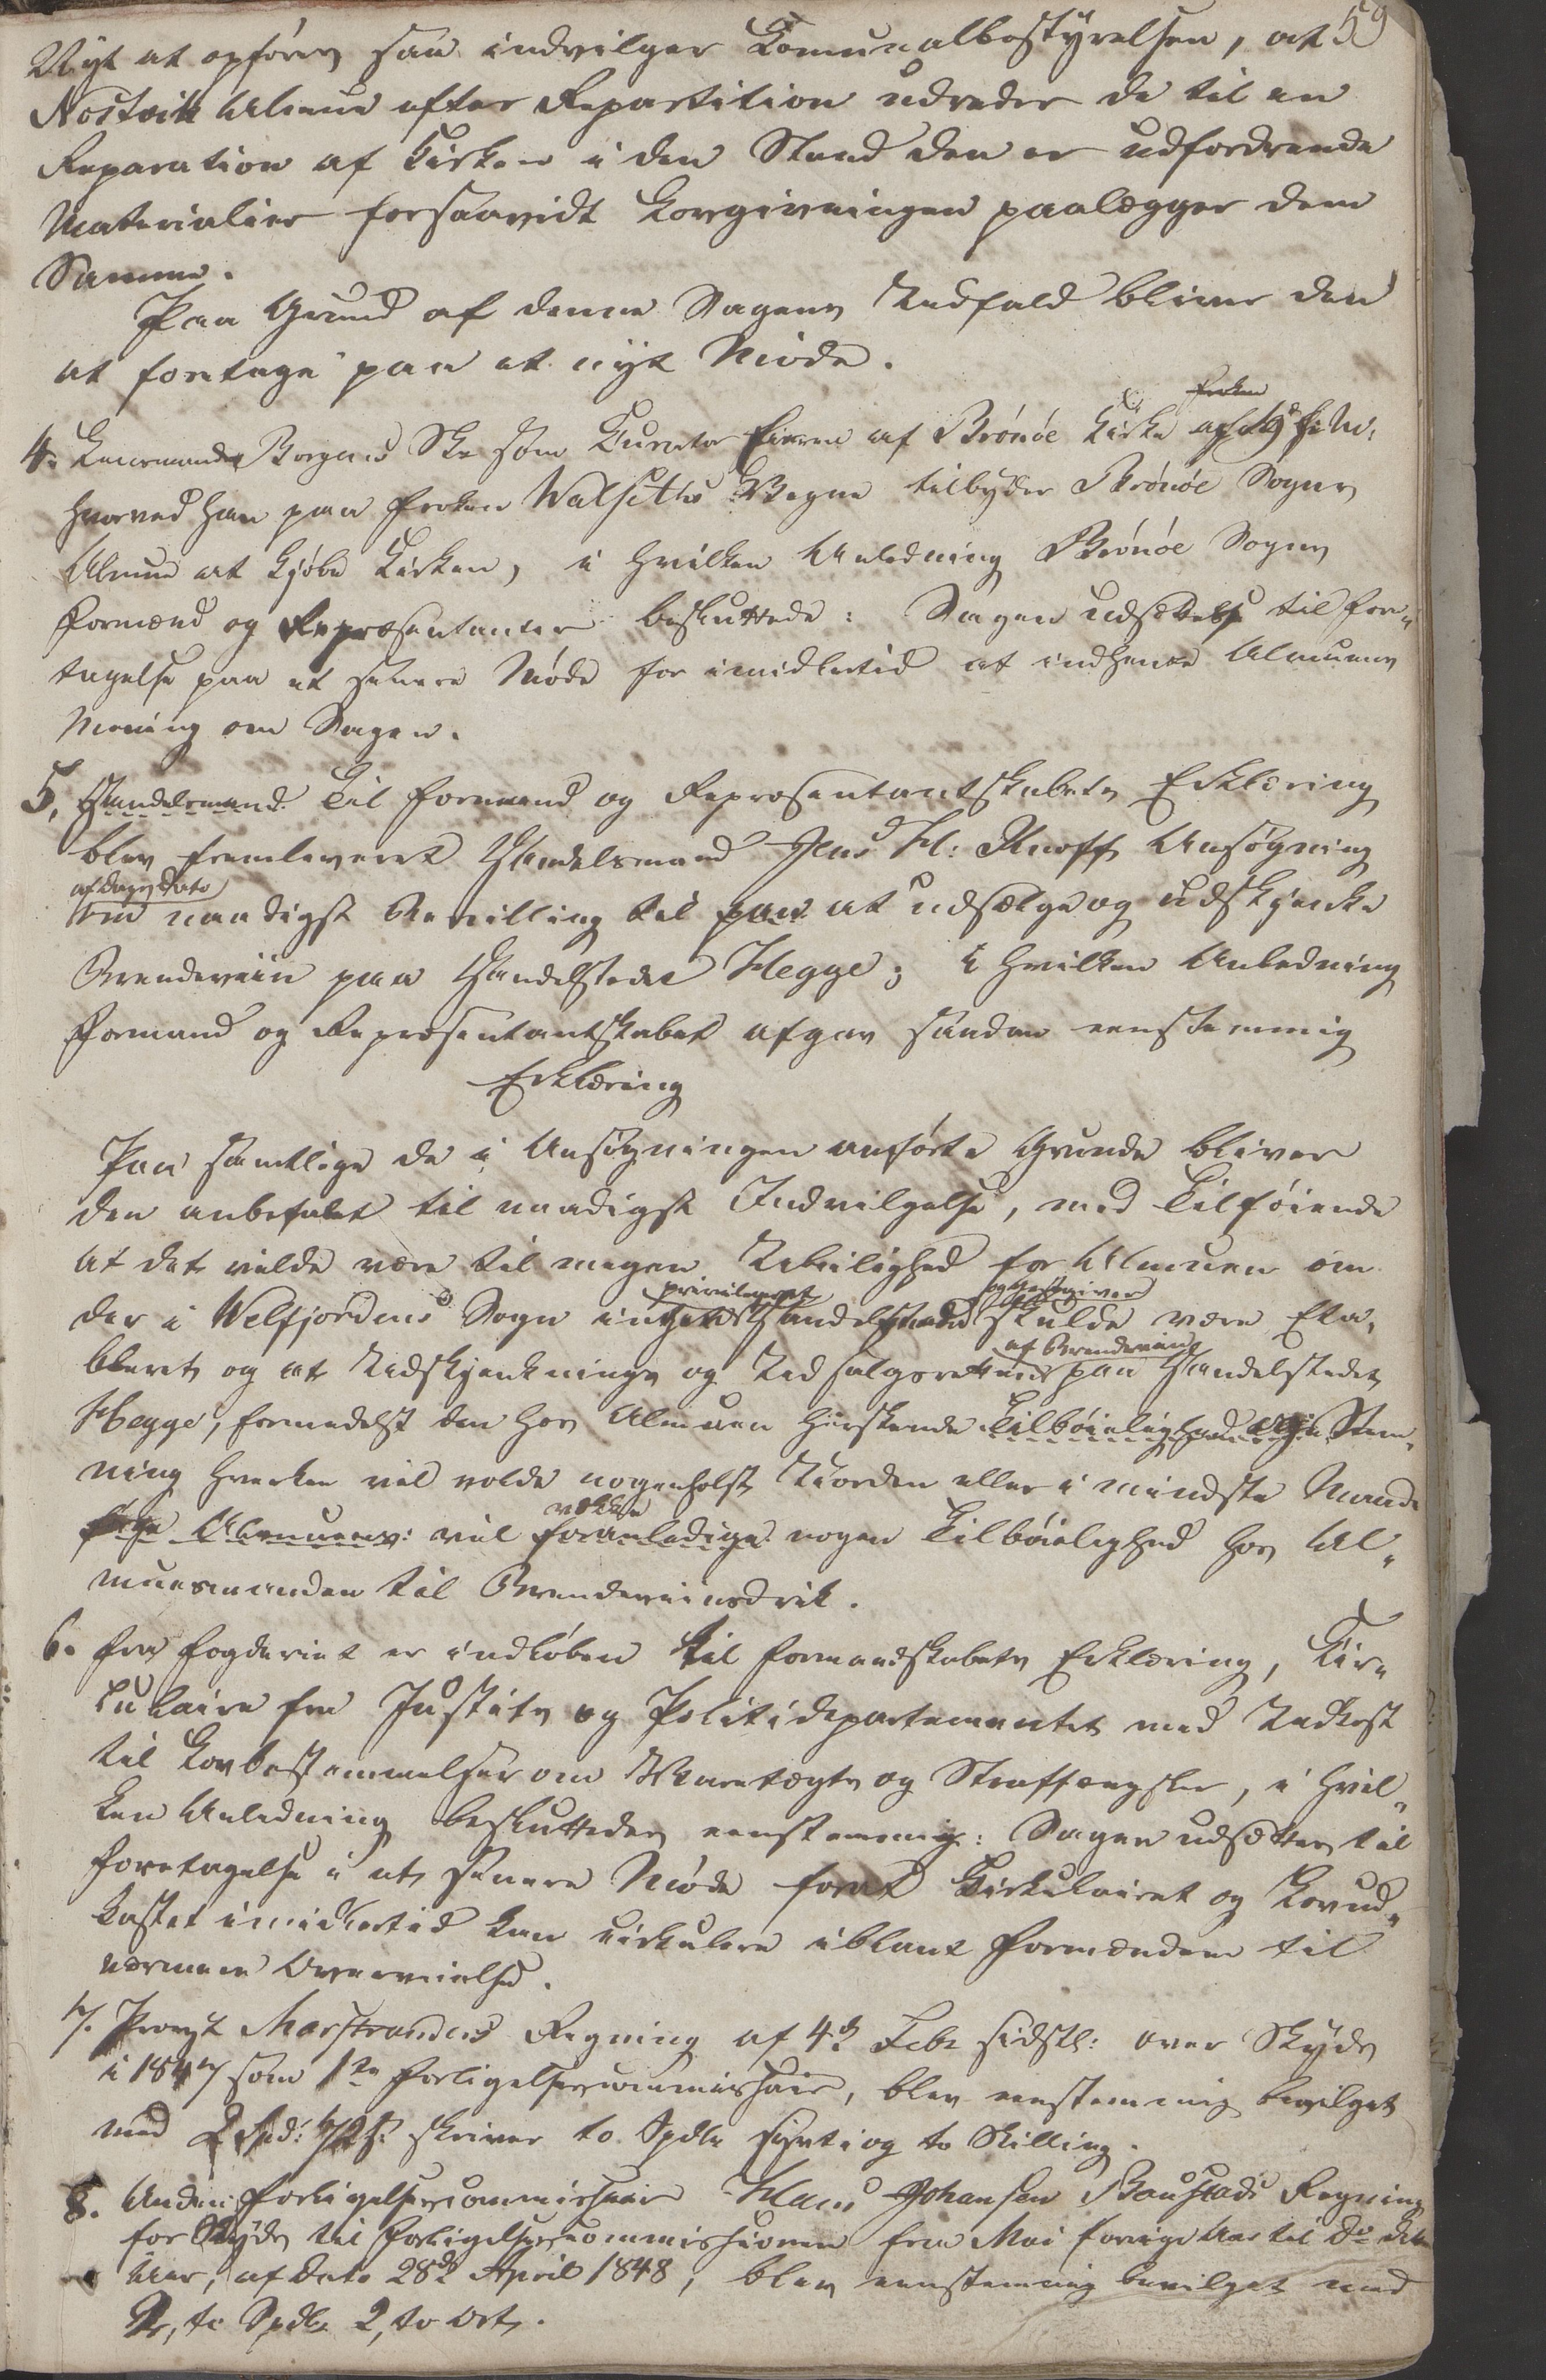 59
Nyt at opføres saa indvilger Komunalbestyrelsen, at
Nostvik Almue efter Repartition udreder de til en
Reparation af Kirken i den Stand den er udfordrende
Materialier forsaavidt Lovgivningen paalægger dem
Samme.
Paa Grund af denne Sagens Udfald bliver den
at foretage paa et nyt Møde.
4. Lensmand Skr som Curator Eieren af Brønøe Kirke
hvorved han paa Frøken Walseths Vegne tilbyder Brønøe Sogns
Almue at kjøbe Kirken, i hvilken Anledning Brønøe Sogns
Formænd og Repræsentanter besluttede: Sagen udsættes til fore-
tagelse paa et senere Møde for imidlertid at indhente Almuens
Mening om Sagen.
5, Handelsmand Til Formænd og Repræsentantskabets Erklæring
blev fremleveret Handelsmand Jens H: Knoff Ansøgning
af Dags Dato
om naadigst Bevilling til paa at udsælge og udskjenke
Brændeviin paa Handelstedet Hegge; i hvilken Anledning
Formand og Repræsentantskabet afgav saadan eenstemmig
Erklæring
Paa samtlige de i Ansøgningen anførte Grunde bliver
den anbefalet til naadigst Indvilgelse, med Tilføiende
at det vilde være til megen Ubeilighed for Almuen om
privilegeret og Gjestgiver
der i Welfjordens Sogn intet Handelsted skulde være Eta-
af Brændeviin
bleret og at Udskjenknings og Udsalgsretten paa Handelstedet
Hegge, formedelst den hos Almuen herskende Tilbøielighed Stem-
ning hverken vil volde nogensholst Uorden eller i mindste Maade
vække
Almuens: vil foranledige nogen Tilbøielighed hos Al-
muesmanden til Brændeviinsdrik.
6. Fra Fogderiet er indløben til Formandskabets Erklæring, Cir-
kulaire fra Justits og Politidepartementet med Udkast
til Lovbestemmelser om Varetægts og Straffængsler, i hvil-
ken Anledning besluttedes eenstemmig: Sagen udsættes til
foretagelse i et senere Møde forat Cirkulairet og Lovud-
kastet imidlertid kan cirkulere iblant Formændene til
nærmere Overveielse.
7. Provst Marstrandens Regning af 4de Febr sidstl: over Skyds
i 1847 som 1ste Forligelsescommissair, blev eenstemmig bevilget
med 2 Spd: 42 s: skriver to Spdlr fyrti og to Skilling.
8. Anden Forligelsescommissair Hans Johansen Boustads Regning
for Skyds til Forligelsescommissionen fra Mai forrige Aar til Do dette
Aar, af Dato 28de April 1848, blev eenstemmig bevilget med
2, to Spdlr 2, to Ort.